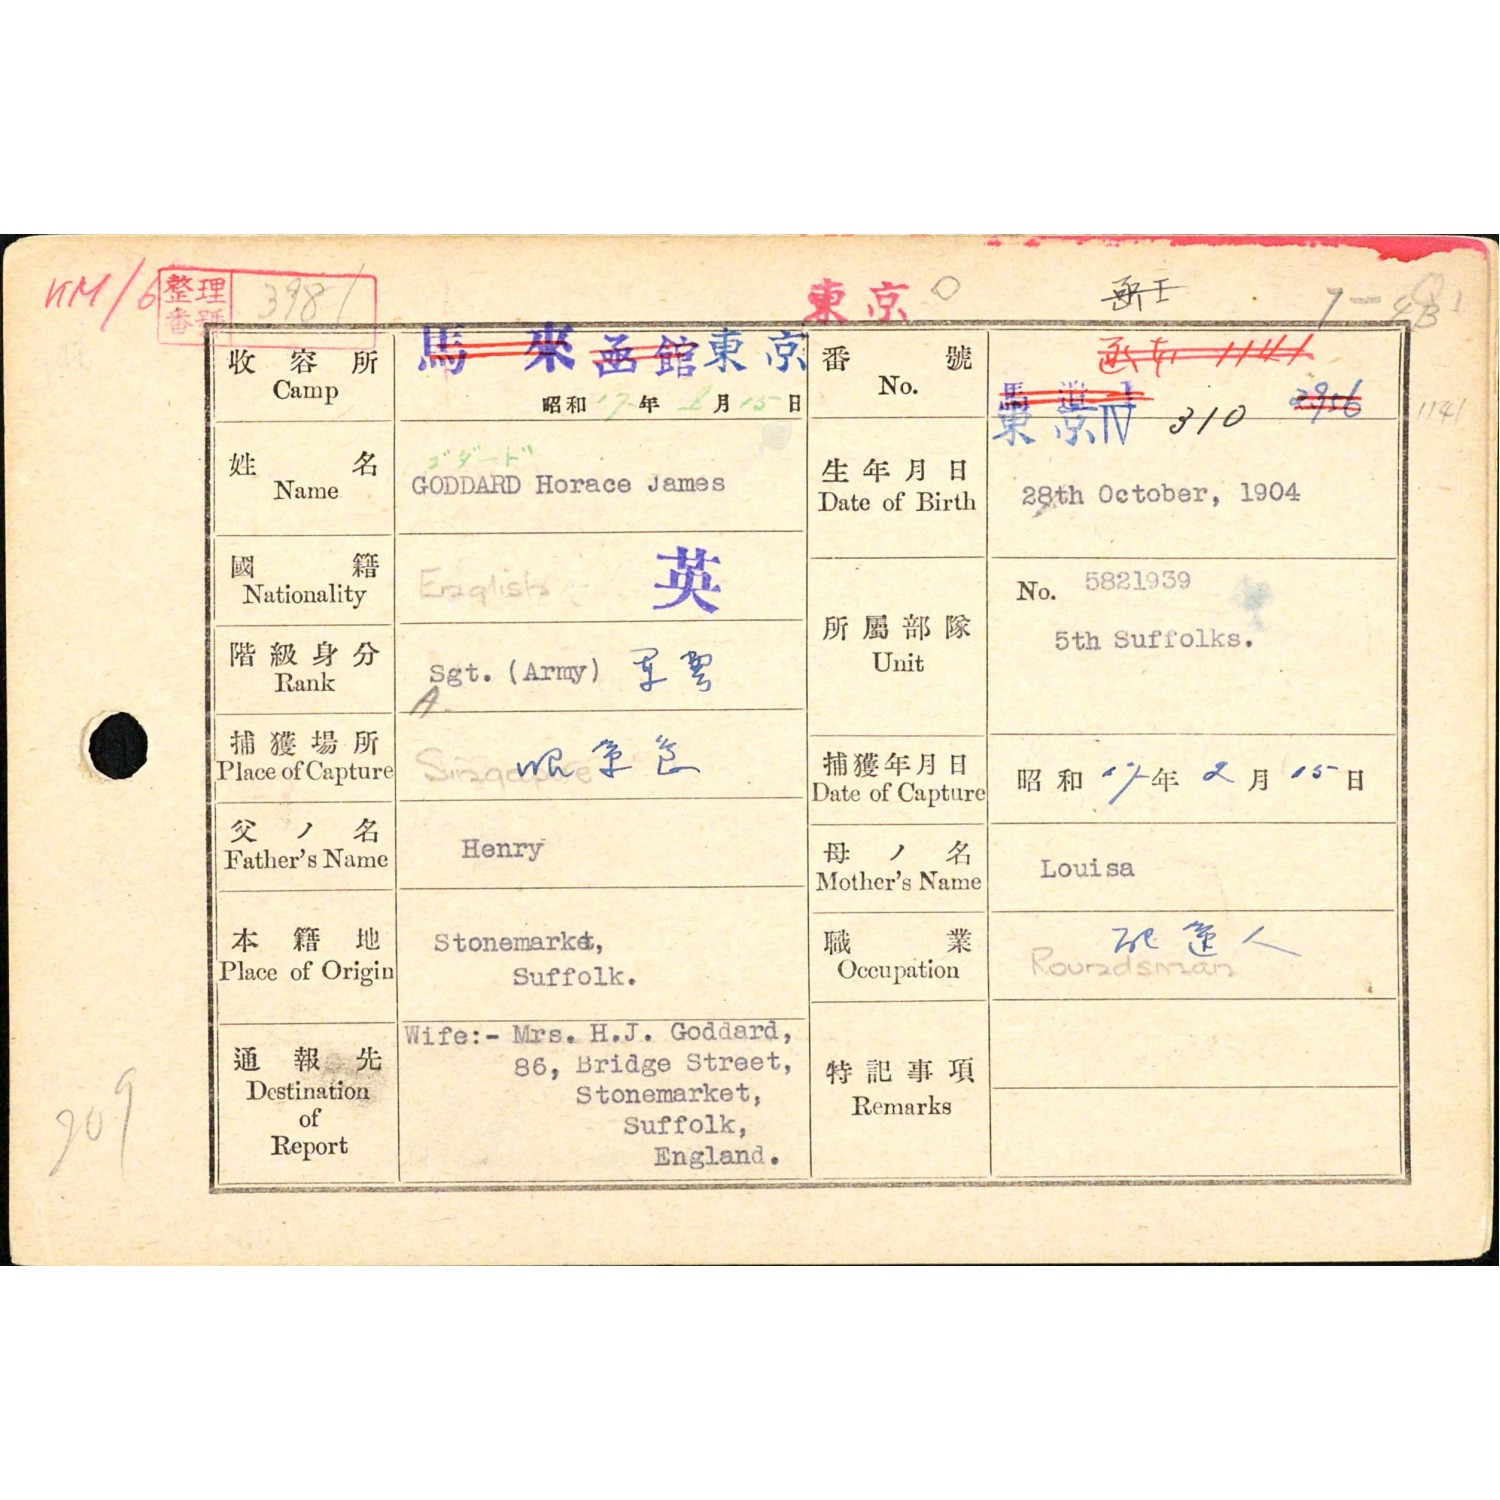 KM/6
整理番號 3981
東京
7-
收容所
Camp
馬來 函館 東京
昭和17年8月15日
番號
No.
1141
東京IV 310 2956
1141
姓名
Name
ゴダード
GODDARD Horace James
生年月日
Date of Birth
28th October, 1904
國籍
Nationality
English 英
所屬部隊
Unit
No. 5821939
5th Suffolks.
階級身分
Rank
Sgt. (Army) 軍曹
A.
捕獲場所
Place of Capture
Singapore 昭南島
捕獲年月日
Date of Capture
昭和17年2月15日
父ノ名
Father's Name
Henry
母ノ名
Mother's Name
Louisa
本籍地
Place of Origin
Stonemarket,
Suffolk.
職業
Occupation
Roundsman 配達人
通報先
Destination
of
Report
Wife:- Mrs. H.J. Goddard,
86, Bridge Street,
Stonemarket,
Suffolk,
England.
特記事項
Remarks
909